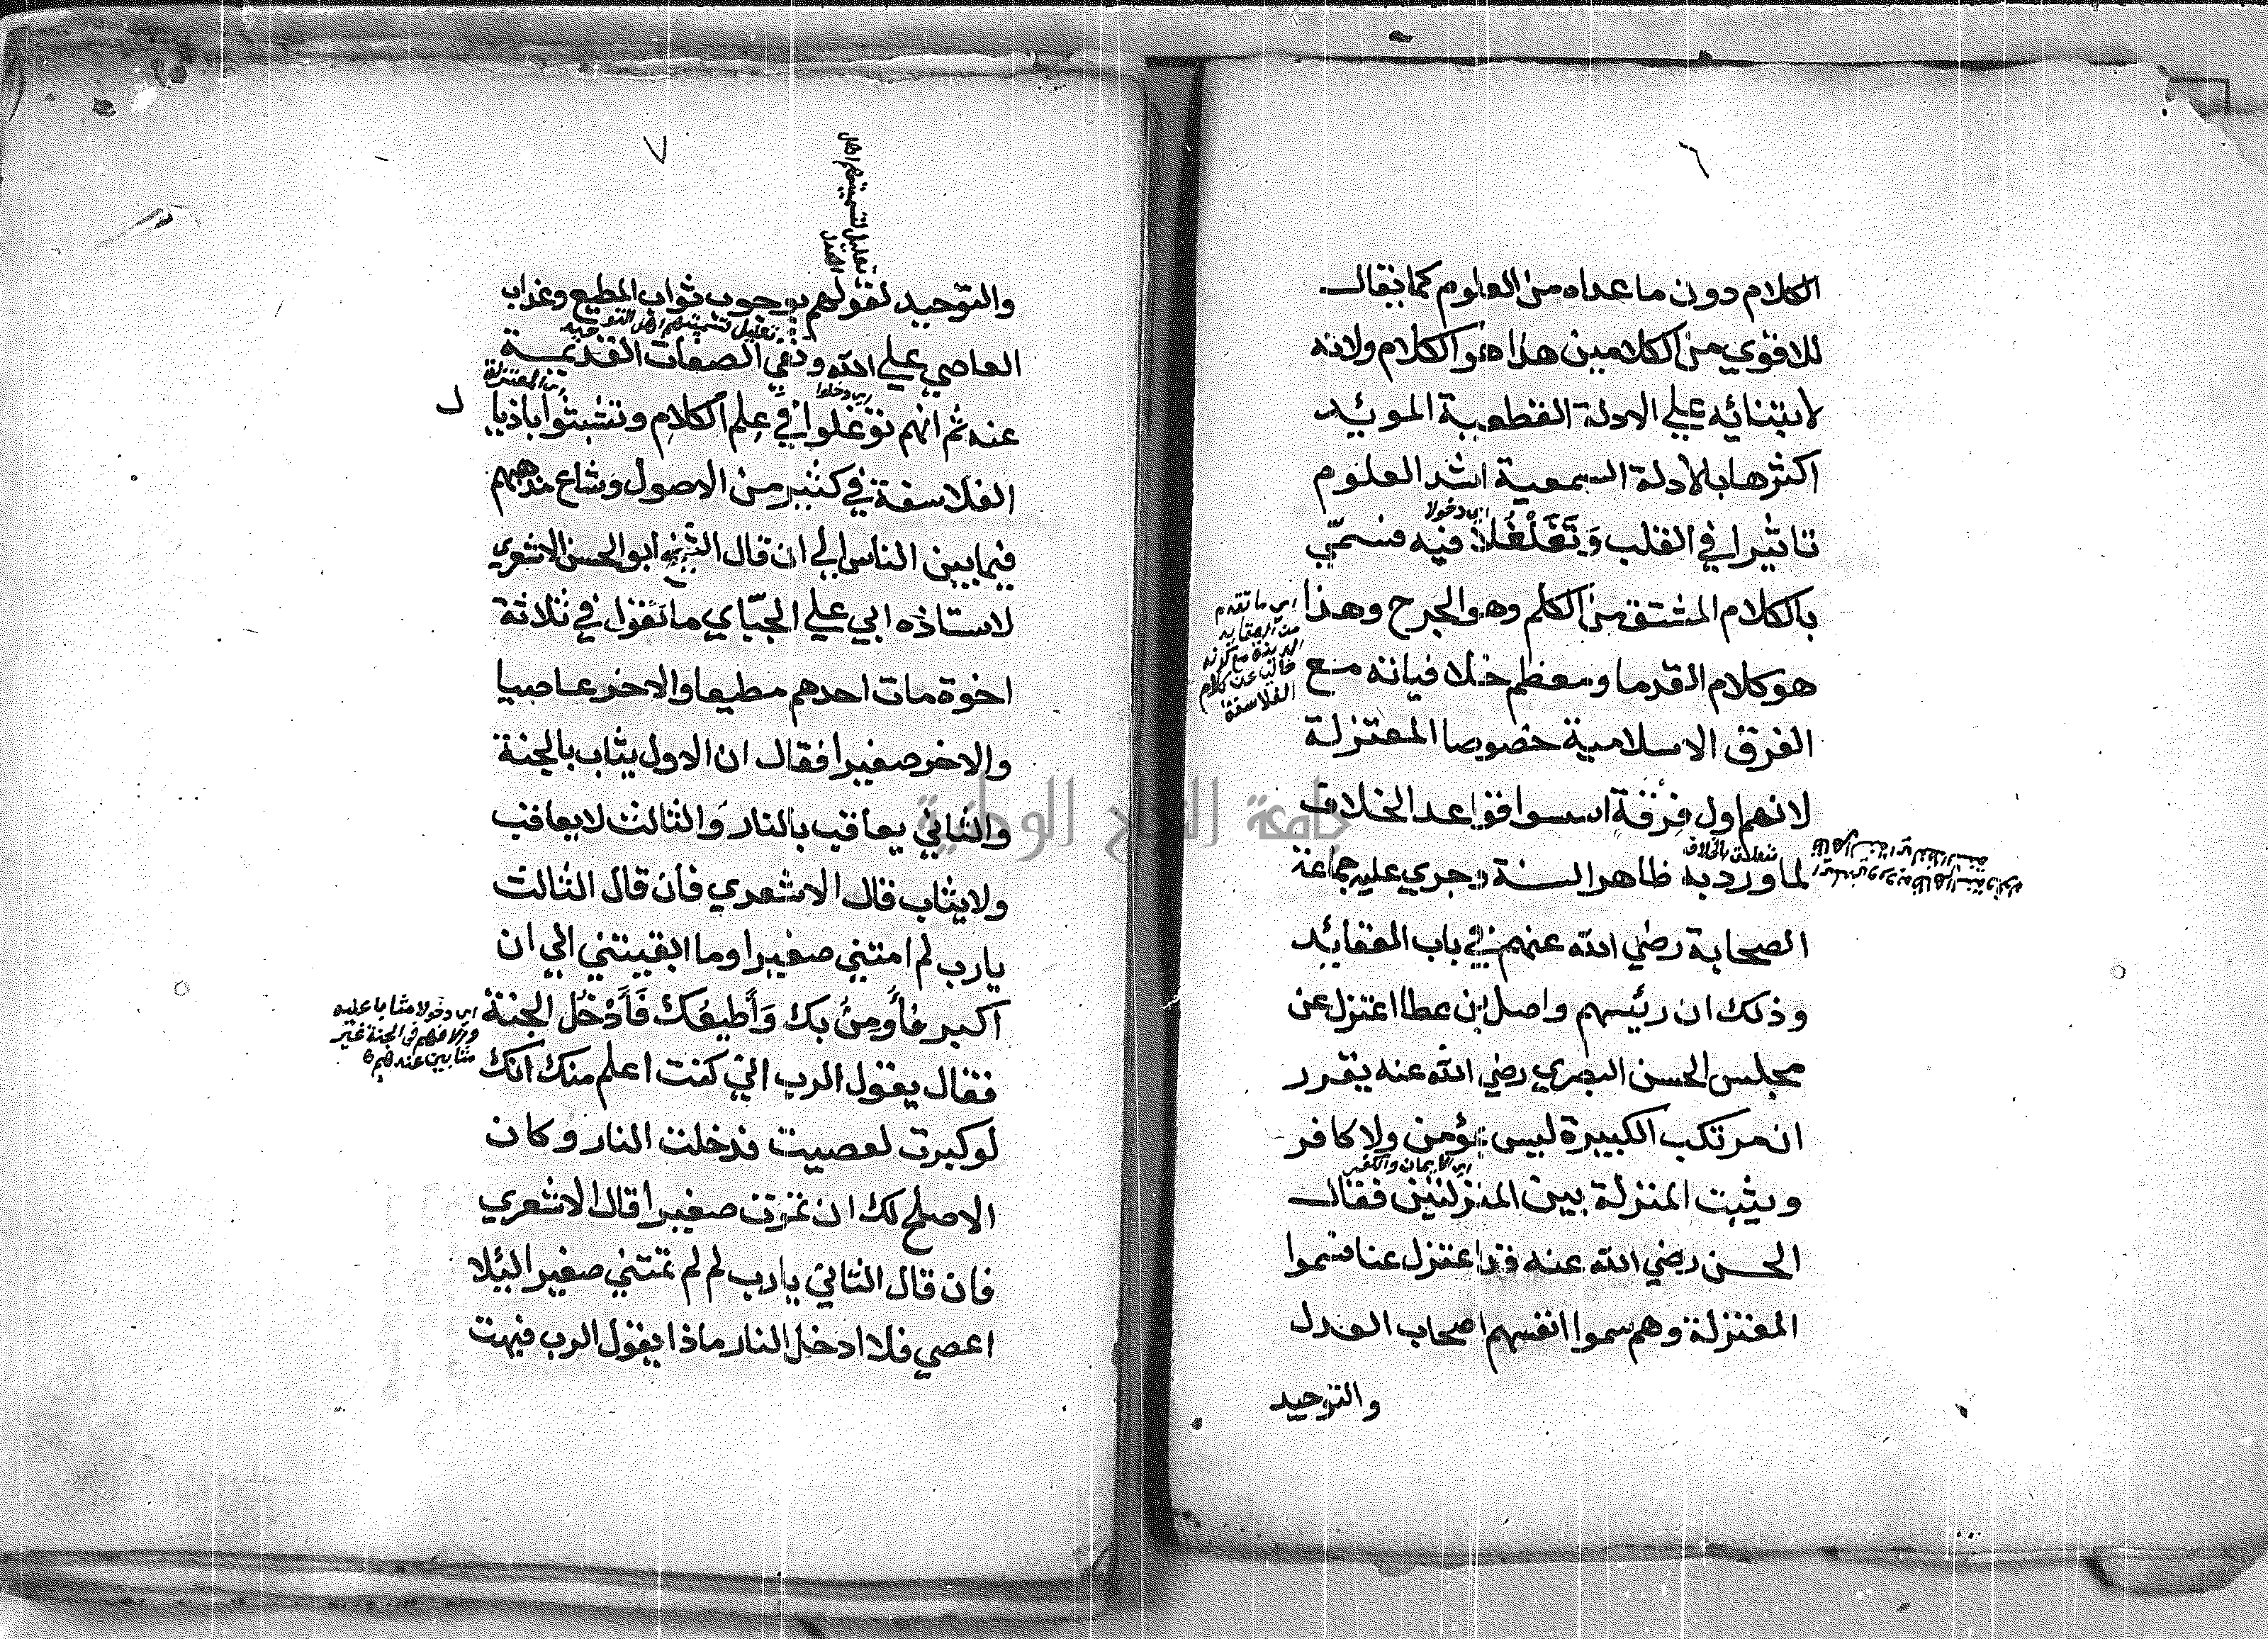 ٦
الكلام دون ما عداه من العلوم كما يقال
للاقوي من الكلامين هذا هو الكلام ولانه
لابتنائه علي الادلة القطعية المويئد
اكثرها بالادلة السمعية اشد العلوم
اي دخولا
تاثيرا في القلب وَتَغَلْغُلًا فيه فسمّي
بالكلام المشتق من الكلم وهو الجرح وهذا
اي ما تقدم
من العقايد
الدينية مع كونه
خاليا عن كلام
الفلاسفة
هو كلام القدما ومعظم خلافياته مع
الفرق الاسلامية خصوصا المعتزلة
لانهم اول فِرْقة اسسوا قواعد الخلاف
متعلق بالخلاف
لما ورد به ظاهر السنة وجري عليه جماعة
الصحابة رضي الله عنهم في باب العقايئد
وذلك ان رئيسهم واصل بن عطا اعتزل عن
مجلس الحسن البصري رضي الله عنه يقرر
ان مرتكب الكبيرة ليس بمؤمن ولا كافر
اي الايمان والكفر
ويثبت المنزلة بين المنزلتين فقال
الحسن رضي الله عنه قد اعتزل عنا فسموا
المعتزلة وهم سموا انفسهم اصحاب العدل
والتوحيد
٧
تعليل لتسميتهم اهل
العدل
والتوحيد لقولهم بوجوب ثواب المطيع وعذاب
تعليل تسميتهم اهل التوحيد
العاصي علي الله ونفي الصفات القديمة
اي دخلوا
اي المعتزلة
عنه ثم انهم توغلوا في علم الكلام وتشبثوا باذيا
ل
الفلاسفة في كثير من الاصول وشاع مذهبهم
فيما بين الناس الي ان قال الشيخ ابو الحسن الاشعري
لاستاذه ابي علي الجبّاي ما تقول في ثلاثة
اخوة مات احدهم مطيعا والاخر عاصيا
والاخر صغيرا فقال ان الاول يثاب بالجنة
والثاني يعاقب بالنار وَالثالث لا يعاقب
ولا يثاب قال الاشعري فان قال الثالث
يارب لم امتني صغيرا وما ابقيتني الي ان
اكبر فأُومِنُ بك وَأُطيعُك فَأَدْخُل الجنة
اي دخولا مثابا عليه
والافهم في الجنة غير
مثابين عندهم
فقال يقول الرب اني كنت اعلم منك انك
لو كبرت لعصيت فدخلت النار وكان
الاصلح لك ان تموت صغيرا قال الاشعري
فان قال الثاني يارب لم لم تمتني صغيرا ليئلا
اعصي فلا ادخل النار ماذا يقول الرب فبهت
جامعة النجاح الوطنية